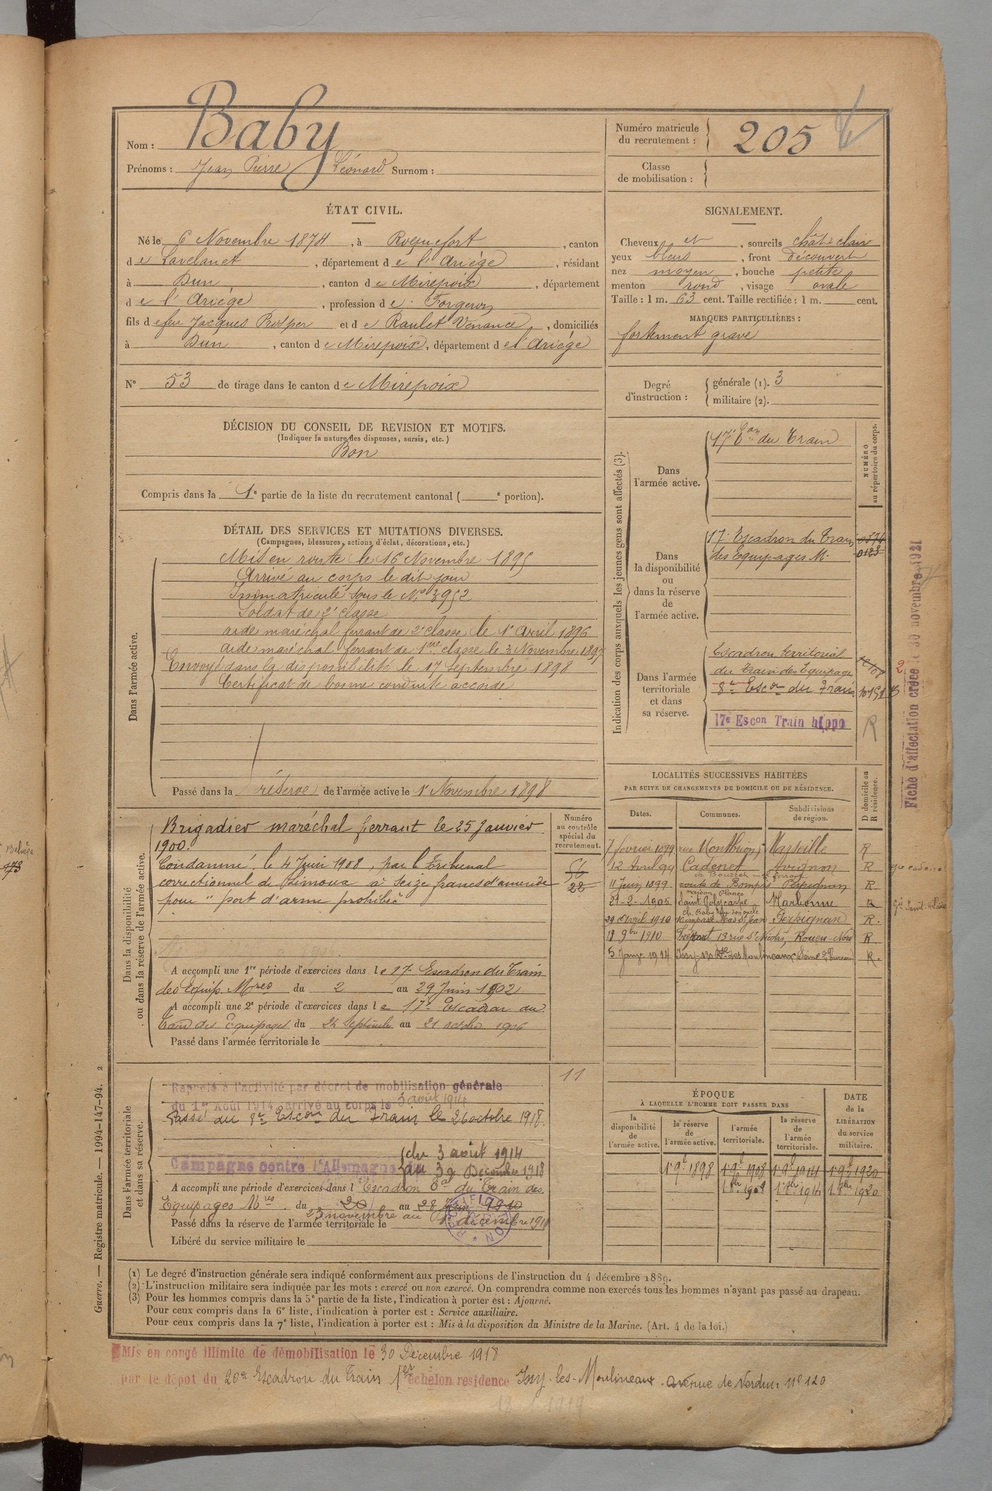 Nom : Baby
Prénoms : Jean Pierre Léonard Surnom :
Numéro matricule du recrutement : 205
Classe de mobilisation :
ÉTAT CIVIL.
Né le 6 Novembre 1874, à Roquefort, canton
de Lavelanet, département de l'Ariége, résidant
à Dun, canton de Mirepoix, département
de l'Ariége, profession de Forgeron
fils de feu Jacques Prosper et de Raulet Venance, domiciliés
à Dun, canton de Mirepoix, département de l'Ariége
N° 53 de tirage dans le canton de Mirepoix
SIGNALEMENT.
Cheveux et, sourcils chât. clair
yeux bleus, front découvert
nez moyen, bouche petite
menton rond, visage ovale
Taille : 1 m. 63 cent. Taille rectifiée : 1 m. cent.
MARQUES PARTICULIÈRES :
fortement gravé
Degré d'instruction : générale (1). 3
militaire (2).
DÉCISION DU CONSEIL DE REVISION ET MOTIFS.
(Indiquer la nature des dispenses, sursis, etc.)
Bon
Compris dans la 1e partie de la liste du recrutement cantonal ( e portion).
DÉTAIL DES SERVICES ET MUTATIONS DIVERSES.
(Campagnes, blessures, actions d'éclat, décorations, etc.)
Dans l'armée active.
Mis en route le 16 Novembre 1895
Arrivé au corps le dit jour
Immatriculé sous le N° 3952
Soldat de 2e classe
aide maréchal ferrant de 2e classe le 1er Avril 1896
aide maréchal ferrant de 1ère classe le 3 Novembre 1897
Envoyé dans la disponibilité le 17 Septembre 1898
Certificat de bonne conduite accordé
Passé dans la réserve de l'armée active le 1er Novembre 1898
Indication des corps auxquels les jeunes gens sont affectés (3).
NUMÉRO au répertoire du corps.
Dans l'armée active.
17e Eon du Train
Dans la disponibilité ou dans la réserve de l'armée active.
17e Escadron du Train
des Equipages M.
Dans l'armée territoriale et dans sa réserve.
Escadron territorial
du Train des Equipage
8e Escon du Train
17e Escon Train hippo
R
Fiche d'affectation créée 30 novembre 1921
LOCALITÉS SUCCESSIVES HABITÉES
PAR SUITE DE CHANGEMENTS DE DOMICILE OU DE RÉSIDENCE.
Dates. Communes. Subdivisions de région. D domicile ou R résidence.
7 février 1899 Marseille R
12 Avril 99 Cadenet Avignon R
11 Juin 1899 Perpignan R
21-2-1905 Narbonne R
1910 Perpignan R.
18 9bre 1910 Rouen-Nord R
5 Janv. 1914 Issy les Moulineaux R.
Dans la disponibilité ou dans la réserve de l'armée active.
Numéro au contrôle spécial du recrutement.
Brigadier maréchal ferrant le 25 Janvier
1900.
Condamné, le 4 Juin 1908, par le Tribunal
correctionnel de Limoux à seize francs d'amende
pour "port d'arme prohibée"
A accompli une 1re période d'exercices dans le 17e Escadron du Train
des Equip. Mres du 2 au 29 Juin 1902
A accompli une 2e période d'exercices dans le 17e Escadron du
Train des Equipages du 24 Septembre au 21 octobre 1906
Passé dans l'armée territoriale le
Dans l'armée territoriale et dans sa réserve.
11
Rappelé à l'activité par décret de mobilisation générale
du 1er Août 1914, arrivé au corps le 3 août 1914
Passé au 8e Escon du Train le 26 octobre 1918.
Campagne contre l'Allemagne du 3 août 1914
au 30 Décembre 1918
A accompli une période d'exercices dans l'Escadron
Equipages Mres du 20 au 28 1910
3 novembre au décembre 1910
Passé dans la réserve de l'armée territoriale le
Libéré du service militaire le
ÉPOQUE
À LAQUELLE L'HOMME DOIT PASSER DANS
la disponibilité de l'armée active. la réserve de l'armée active. l'armée territoriale. la réserve de l'armée territoriale. DATE de la LIBÉRATION du service militaire.
1er 9bre 1898 1er 9bre 1908 1er 9bre 1914 1er 9bre 1920
(1) Le degré d'instruction générale sera indiqué conformément aux prescriptions de l'instruction du 4 décembre 1889.
(2) L'instruction militaire sera indiquée par les mots : exercé ou non exercé. On comprendra comme non exercés tous les hommes n'ayant pas passé au drapeau.
(3) Pour les hommes compris dans la 5e partie de la liste, l'indication à porter est : Ajourné.
Pour ceux compris dans la 6e liste, l'indication à porter est : Service auxiliaire.
Pour ceux compris dans la 7e liste, l'indication à porter est : Mis à la disposition du Ministre de la Marine. (Art. 4 de la loi.)
Mis en congé illimité de démobilisation le 30 Décembre 1918
par le dépot du 20e Escadron du Train 1er échelon résidence Issy-les-Moulineaux avenue de Verdun n° 120
Guerre. — Registre matricule. — 1994-147-94. 2